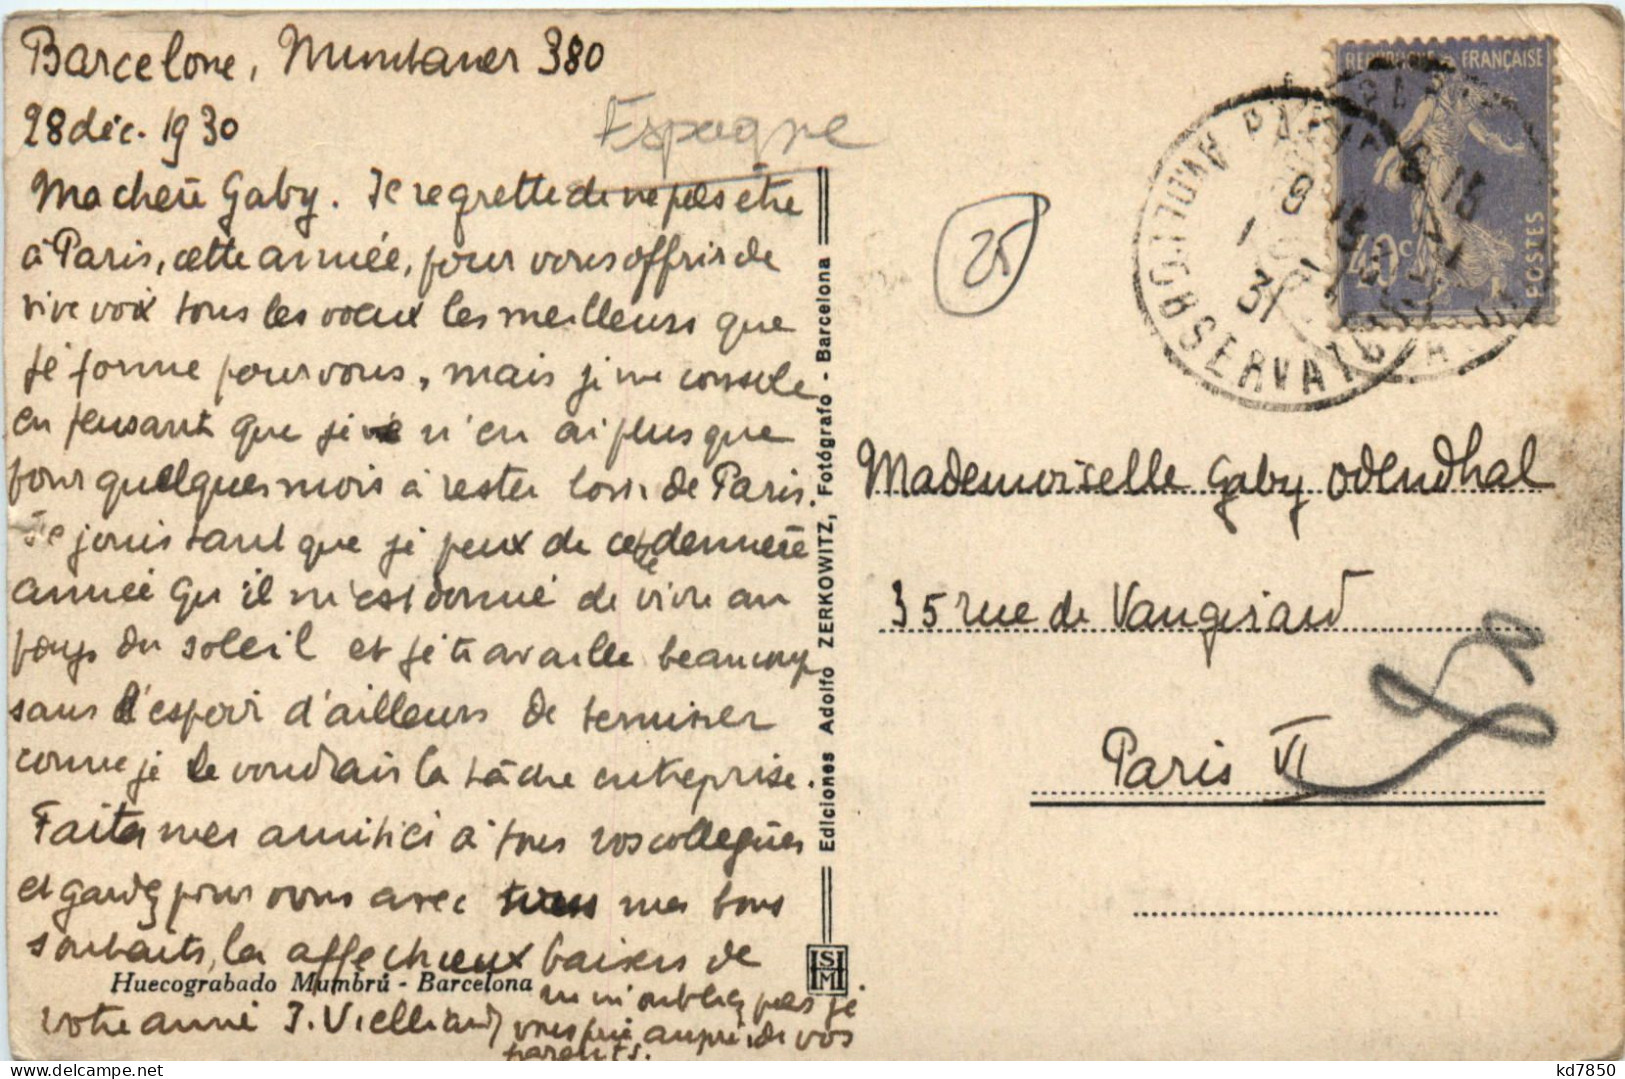 Barcelone, Muntaner 380
28 déc. 1930
Espagne
Ma chère Gaby. Je regrette de ne pas être
à Paris, cette année, pour vous offrir de
vive voix tous les vœux les meilleurs que
je forme pour vous, mais je me console
en pensant que je n'en ai plus que
pour quelques mois à rester loin de Paris.
Je jouis tant que je peux de cette dernière
année qu'il m'est donné de vivre au
pays du soleil et je travaille beaucoup
sans l'espoir d'ailleurs de terminer
comme je le voudrais la tâche entreprise.
Faites mes amitiés à tous vos collègues
et gardez pour vous avec tous mes bons
souhaits, les affectueux baisers de
votre amie J. Vielliard
ne m'oubliez pas je
vous prie auprès de vos
parents.
Huecograbado Mumbrú - Barcelona
Ediciones Adolfo ZERKOWITZ, Fotógrafo - Barcelona
HSMH
25
REPUBLIQUE FRANÇAISE
40c
POSTES
PARIS
OBSERVATOIRE
Mademoiselle Gaby Odendhal
35 rue de Vaugirard
Paris VI
kd7850